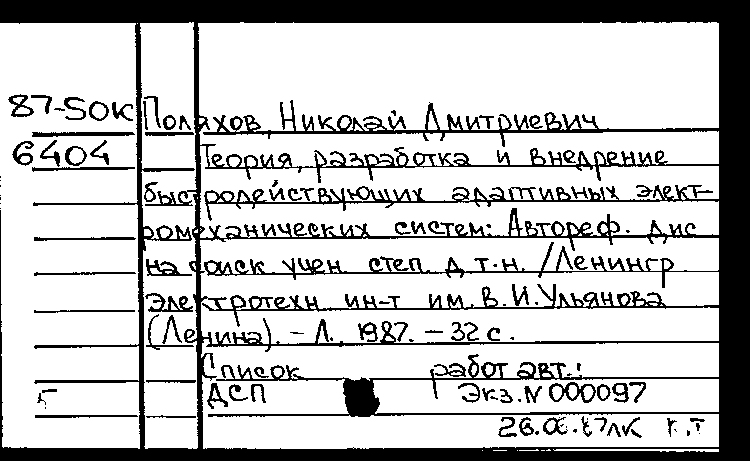 87-50К Поляхов, Николай Дмитриевич
6404 Теория, разработка и внедрение
быстродействующих адаптивных элект-
ромеханических систем: Автореф. дис
на соиск учен. степ. д.т.н. /Ленингр.
электротехн ин-т им. В. И. Ульянова
(Ленина). – Л., 1987. – 32 с.
Список работ авт.:
5 ДСП Экз. N 000097